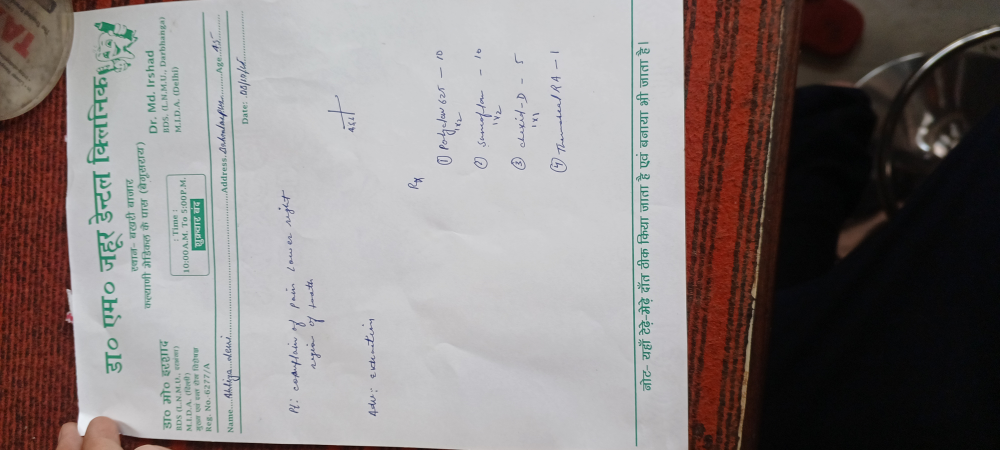 डा० एम० जहूर डेन्टल क्लिनिक
स्थान- बखरी बाजार
कल्याणी मेडिकल के पास (बेगूसराय)
डा० मो० इरशाद
BDS (L.N.M.U., दरभंगा)
M.I.D.A. (दिल्ली)
मुख एवं दन्त रोग विशेषज्ञ
Reg. No.:6277/A
: Time :
10:00A.M. To 5:00P.M.
शुक्रवार बंद
Dr. Md. Irshad
BDS. (L.N.M.U., Darbhanga)
M.I.D.A. (Delhi)
Name... devi Address. Age. 45
Date:
Pt: complain of Pain Lower right
region of teeth
Adv: extraction
Rx
① Polyclav 625 — 10
1x2
② Sumoflam — 10
1x2
③ — D — 5
1x1
④ RA — 1
नोट- यहाँ टेढ़े-मेढ़े दाँत ठीक किया जाता है एवं बनाया भी जाता है।